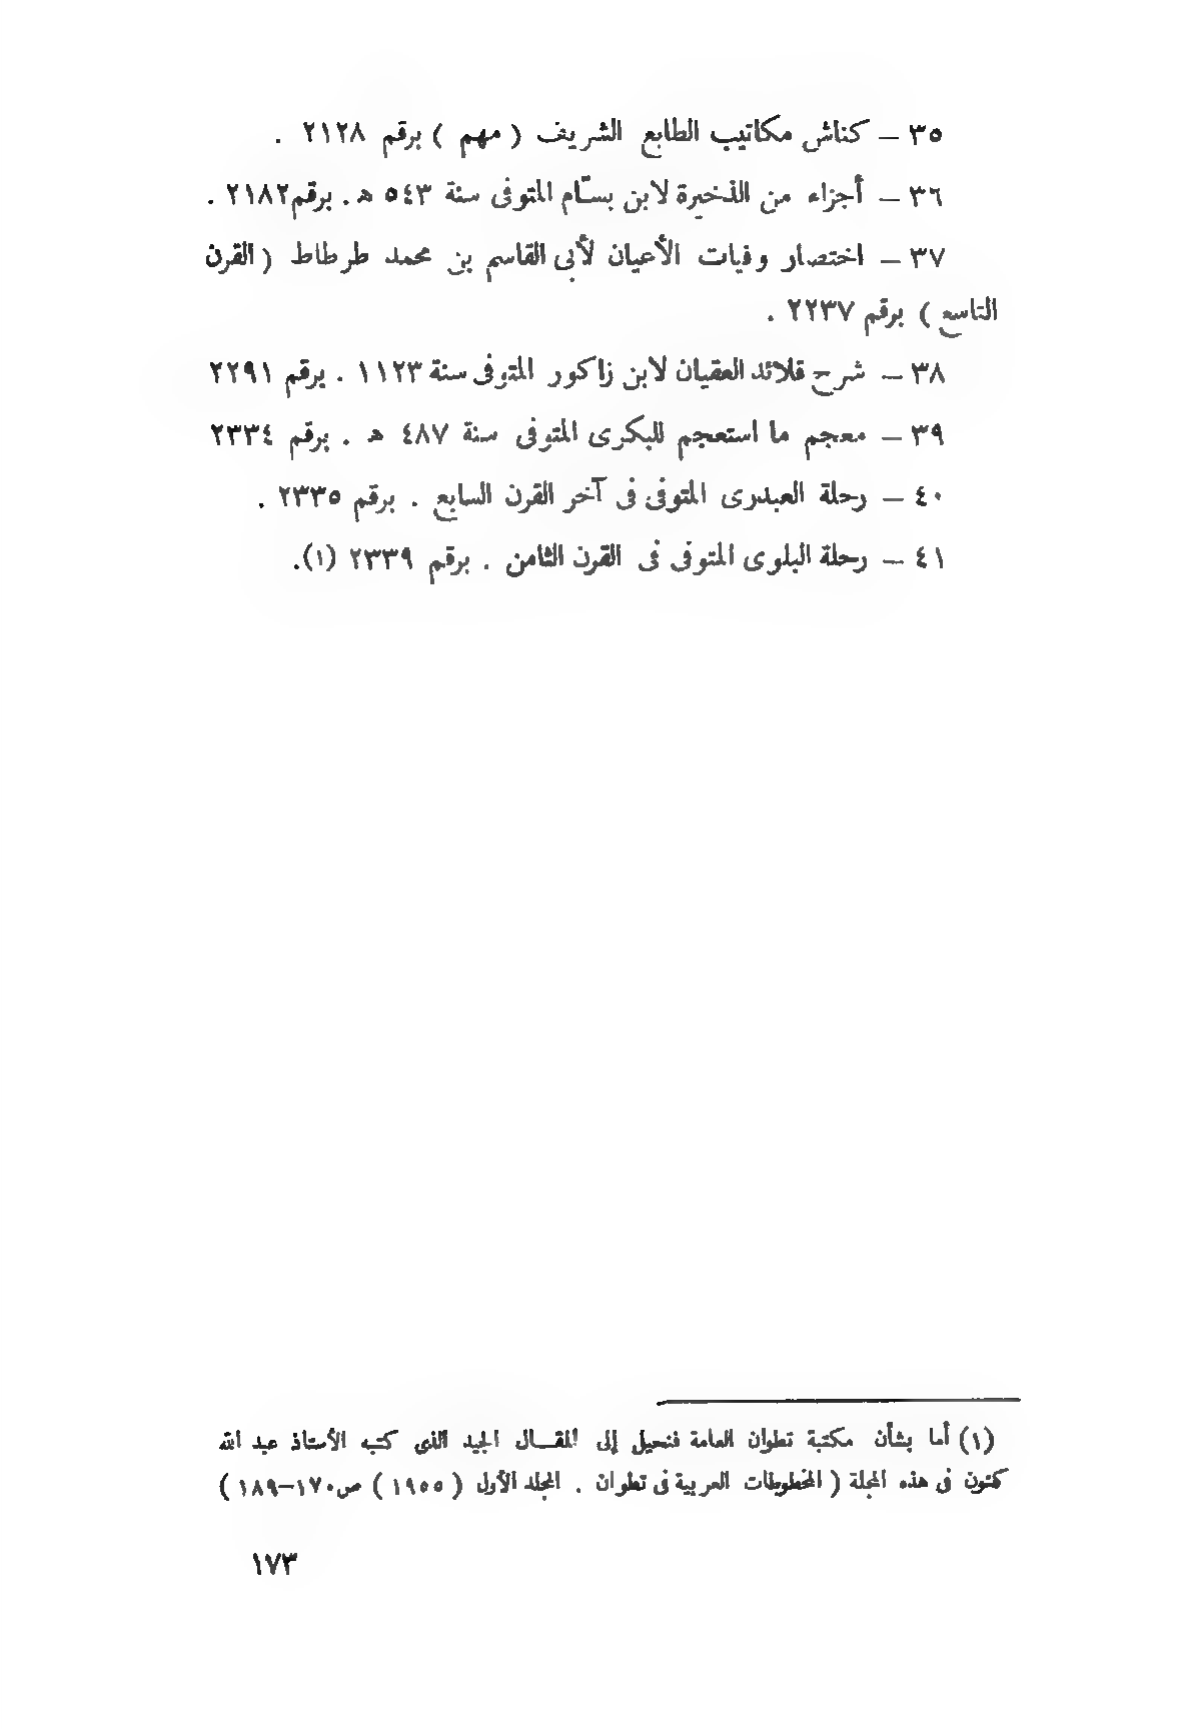 ٣٥ – كناش مكاتيب الطابع الشريف ( مهم ) برقم ٢١٢٨ .
٣٦ – أجزاء من الذخيرة لابن بسّام المتوفى سنة ٥٤٣ هـ . برقم٢١٨٢ .
٣٧ – اختصار وفيات الأعيان لأبى القاسم بن محمد طرطاط ( القرن
التاسع ) برقم ٢٢٣٧ .
٣٨ – شرح قلائد العقيان لابن زاكور المتوفى سنة ١١٢٣ . برقم ٢٢٩١
٣٩ – معجم ما استعجم للبكرى المتوفى سنة ٤٨٧ هـ . برقم ٢٣٣٤
٤٠ – رحلة العبدرى المتوفى فى آخر القرن السابع . برقم ٢٣٣٥ .
٤١ – رحلة البلوى المتوفى فى القرن الثامن . برقم ٢٣٣٩ (١).
(١) أما بشأن مكتبة تطوان العامة فنحيل إلى المقـــال الجيد الذي كتبه الأستاذ عبد الله
كنون فى هذه المجلة ( المخطوطات العربية فى تطوان . المجلد الأول ( ١٩٥٥ ) ص١٧٠–١٨٩ )
١٧٣